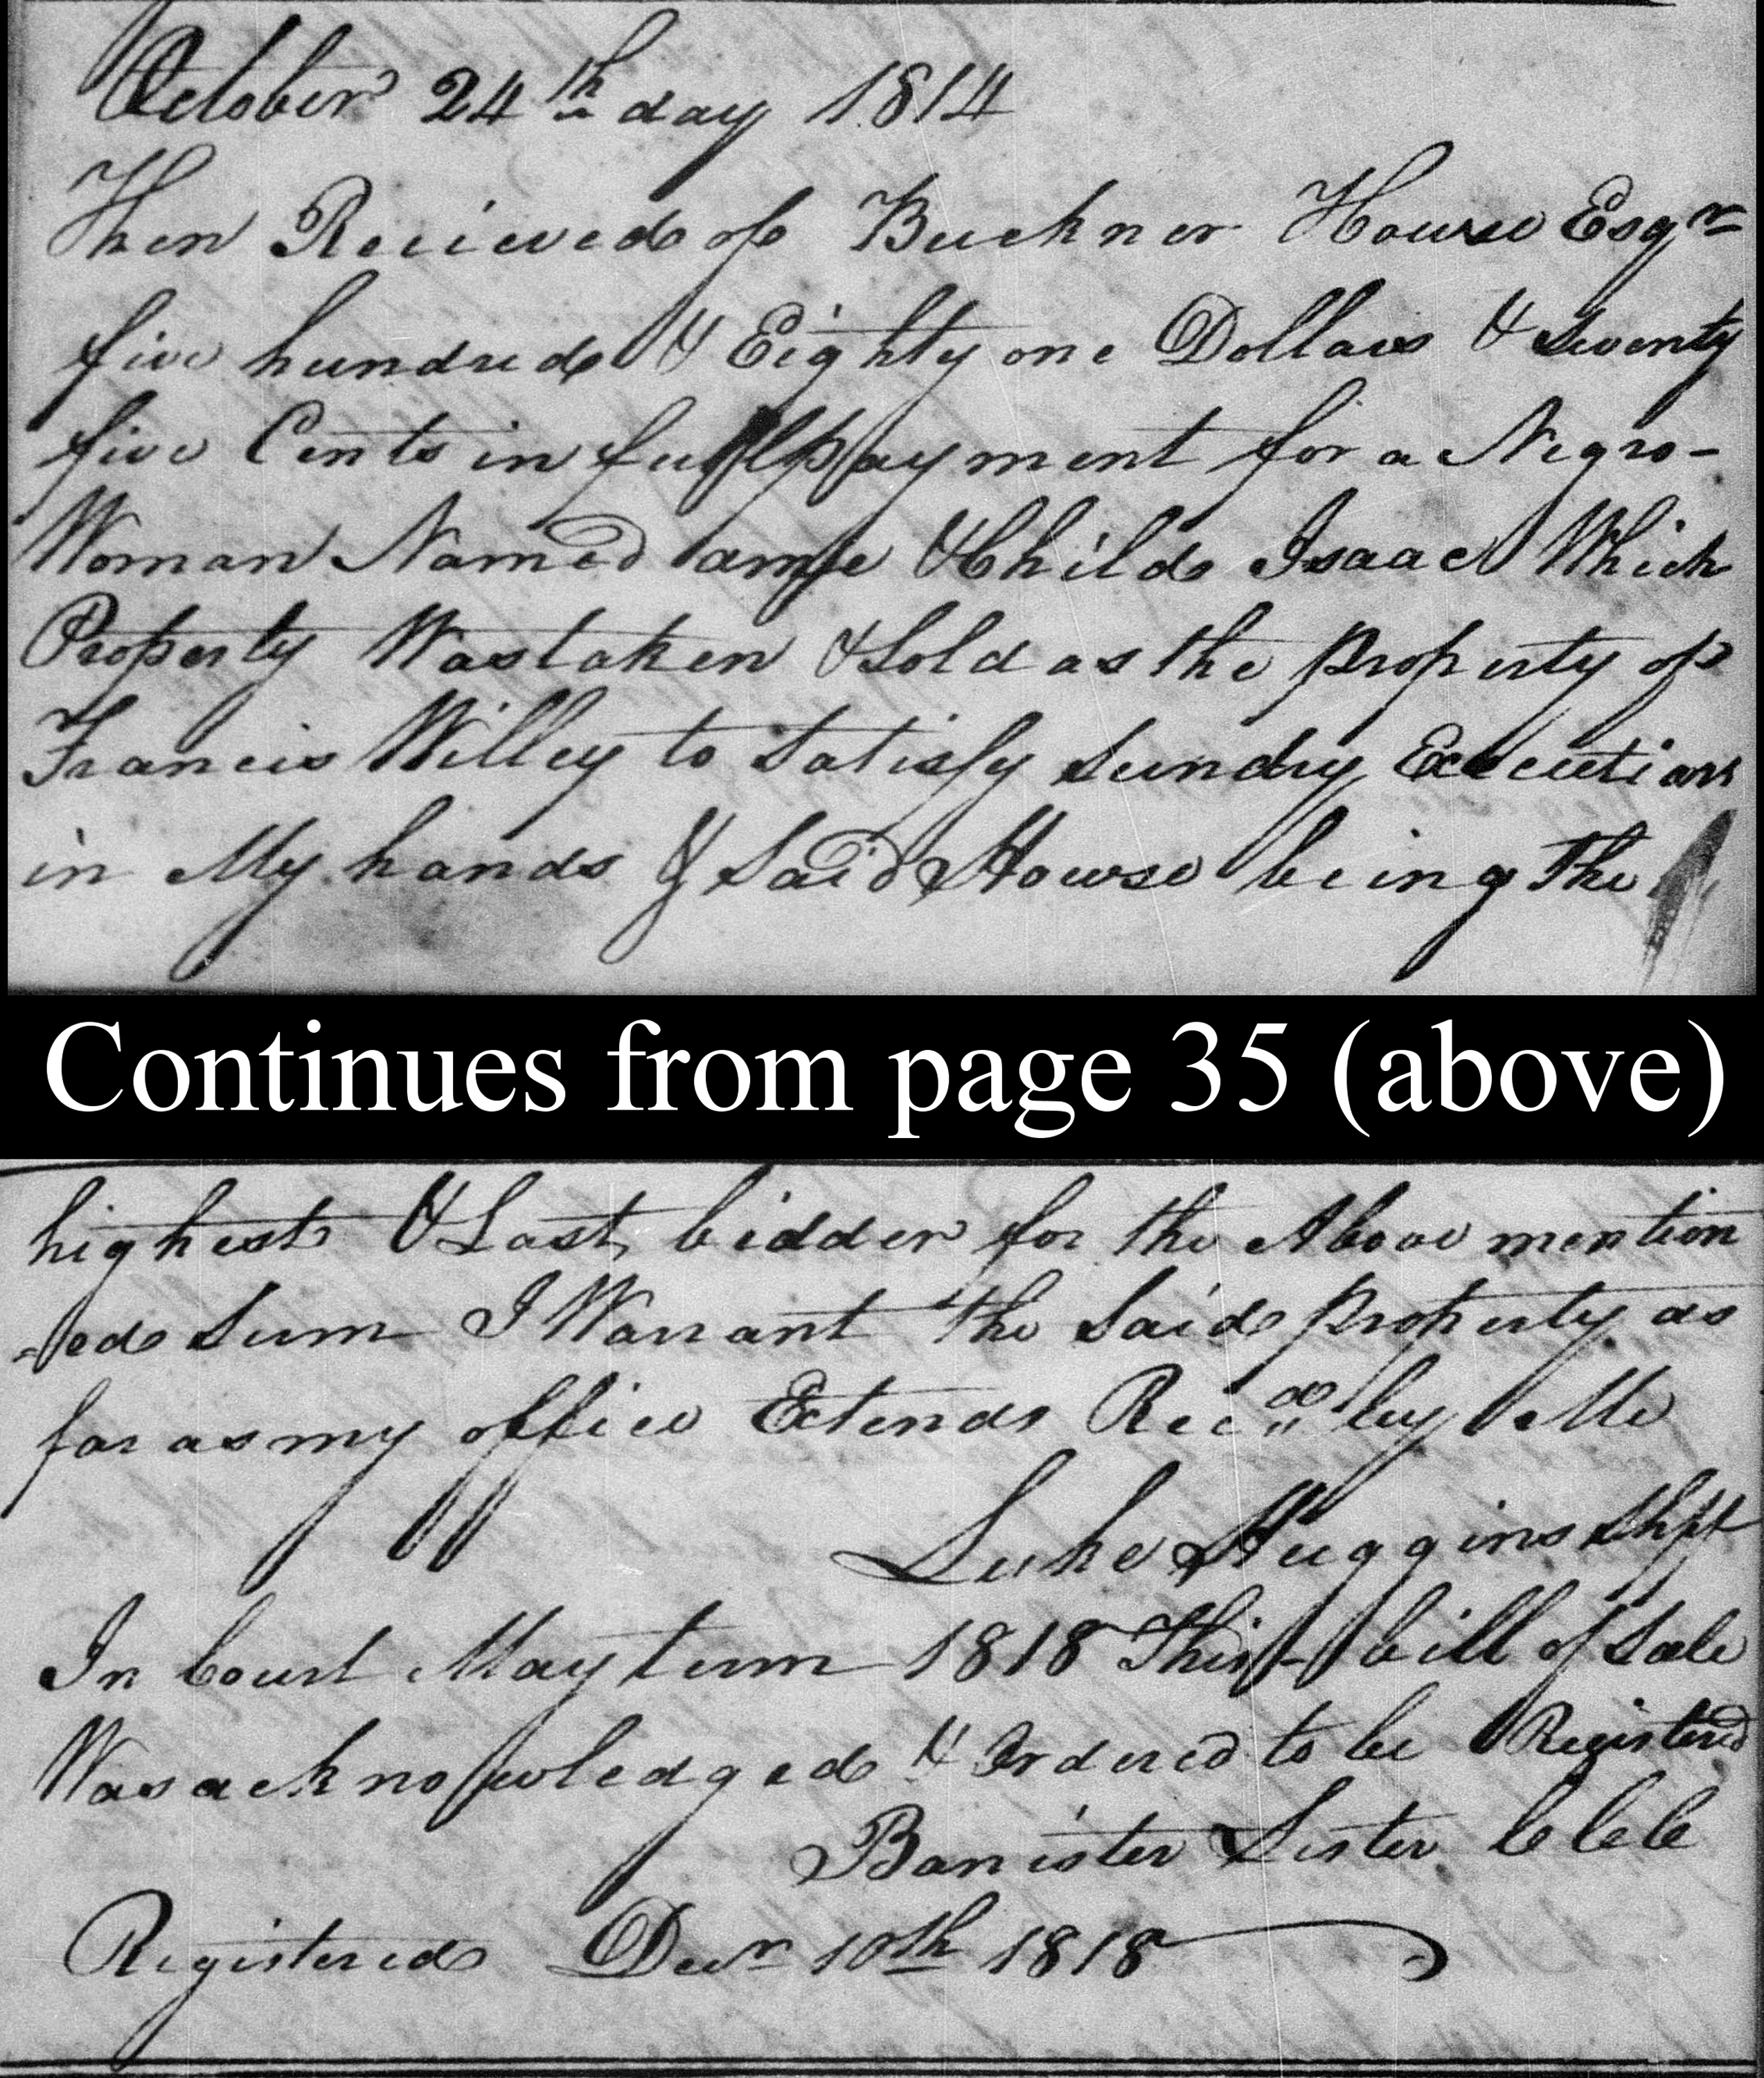 October 24th day 1814
Then Recieved of Buckner Howse Esqr
five hundred & Eighty one Dollars & Seventy
five Cents in full payment for a Negro-
Woman Named & Child Isaac Which
Property Was taken & Sold as the property of
Francis Willey to Satisfy Sundry Executions
in My hands & Said Howse being The
Continues from page 35 (above)
highest & Last bidder for the Above mention
-ed Sum I Warrant the Said property as
far as my office Extends Recd by Me
Luke Huggins Shff
In Court May term 1818 This bill of Sale
Was acknowledged & Ordered to be Registered
Banister Lister
Registered Decr 10th 1818